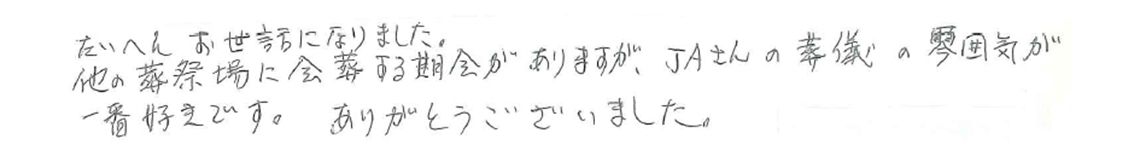 たいへん お世話になりました。
他の葬祭場に会葬する期会がありますが、JAさんの葬儀の雰囲気が
一番好きです。 ありがとうございました。